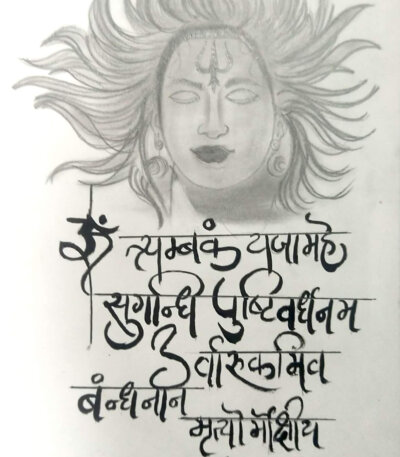 ॐ त्र्यम्बकं यजामहे
सुगन्धिं पुष्टिवर्धनम
उर्वारुकमिव
बंन्धनान
मृत्यो र्मोक्षीय